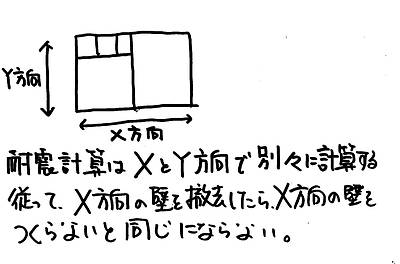 Y方向
X方向
耐震計算はXとY方向で別々に計算する
従って、X方向の壁を撤去したら、X方向の壁を
つくらないと同じにならない。